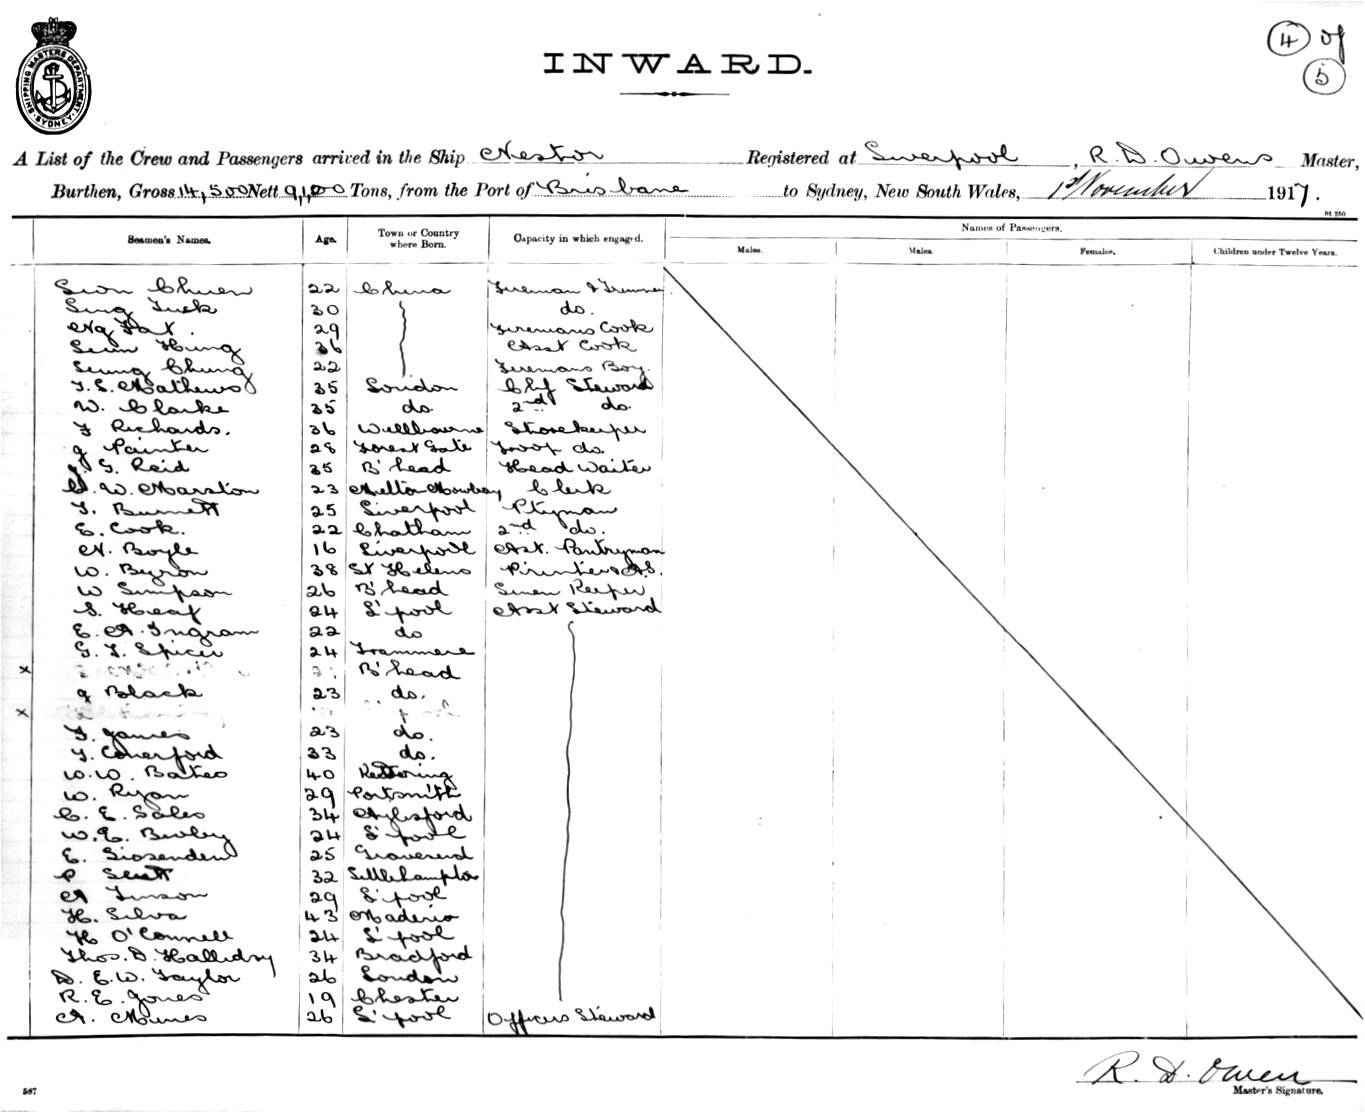 4 of
5
SHIPPING MASTERS DEPARTMENT
SYDNEY
INWARD.
A List of the Crew and Passengers arrived in the Ship Nestor Registered at Liverpool, R. D. Owens Master,
Burthen, Gross 14,500 Nett 9,100 Tons, from the Port of Brisbane to Sydney, New South Wales, 1st November 1917.
Names of Passengers.
Seamen's Names. Age. Town or Country where Born. Capacity in which engaged. Males. Males. Females. Children under Twelve Years.
Chuen 22 China Fireman & Trimmer
Sing Tuck 30 do.
Ng Fat. 29 Firemans Cook
Hung 36 Asst Cook
Chung 22 Firemans Boy.
T. S. Mathews 35 London Chf Steward
W. Clarke 35 do. 2nd do.
F Richards. 36 Wellbourne Storekeeper
J Painter 28 Forest Gate Troop do.
G. Reid 35 B'head Head Waiter
C. W. Marston 23 Melton Mowbray Clerk
T. Burnett 25 Liverpool Ptyman
E. Cook. 22 Chatham 2nd do.
N. Boyle 16 Liverpool Ast. Pantryman
W. Byron 38 St Helens Printer & A.S.
W Simpson 26 B'head Linen Keeper
S. Heaf 24 L'pool Asst Steward
E. A. Ingram 22 do
G. T. Spicer 24 Tranmere
x B'head
J Black 23 do.
x
F. James 23 do.
T. 33 do.
W. W. Bates 40 Kettering
W. Ryan 29 Portsmith
C. E. Sales 34 Aylesford
W. E. Bewley 24 L'pool
E. 25 Gravesend
P Scott 32 Littlehampton
A 29 L'pool
H. Silva 43 Maderia
H O'Connell 24 L'pool
Thos. D. Halliday 34 Bradford
D. E. W. Taylor 26 London
R. E. Jones 19 Chester
A. 26 L'pool Officers Steward
R. D. Owen
Master's Signature.
587